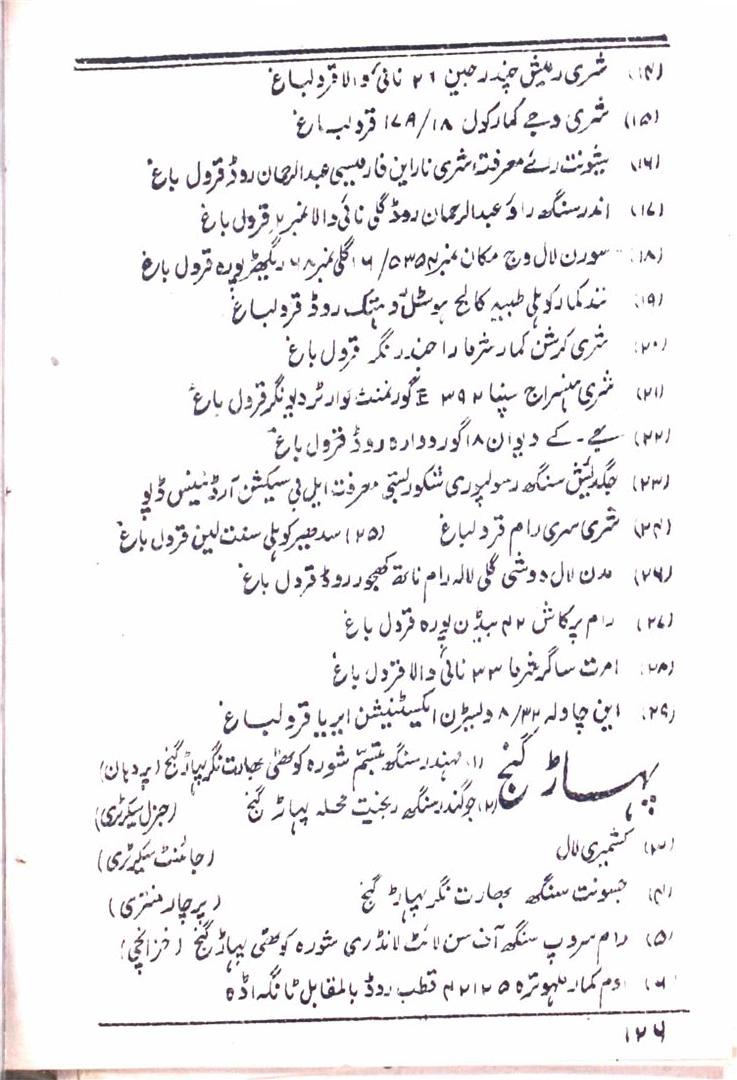 (۱۴) شری رمیش چندر جین ۲۶ نائی والا قرولباغ
(۱۵) شری وجے کمار کول ۱۷۹/۱۸ قرولباغ
(۱۶) یشونت رائے معرفت شری نارائن فارمیسی عبدالرحمان روڈ قرول باغ
(۱۷) اندر سنگھ راؤ عبدالرحمان روڈ گلی نائی والا نمبر ۲ قرول باغ
(۱۸) سورن لال وج مکان نمبر ۱۶/۵۳۵۴ گلی نمبر ۶۸ ریگھڑ پورہ قرول باغ
(۱۹) نند کمار کوہلی طبیہ کالج ہوسٹل روہتک روڈ قرولباغ
(۲۰) شری کرشن کمار شرما راجندر نگر قرول باغ
(۲۱) شری ہنسراج سپنا ۳۹۲ E گورنمنٹ کوارٹر دیونگر قرول باغ
(۲۲) جے۔ کے دیوان ۱۸ گوردوارہ روڈ قرول باغ
(۲۳) جگدیش سنگھ رسولپوری شکور بستی معرفت ایل بی سیکشن آرڈنینس ڈپو
(۲۴) شری سری رام قرولباغ (۲۵) سدھیر کوہلی سنت لین قرول باغ
(۲۶) مدن لال دوشی گلی لالہ رام ناتھ کھجور روڈ قرول باغ
(۲۷) رام پرکاش ۴۲ بیڈن پورہ قرول باغ
(۲۸) امرت ساگر شرما ۳۳ نائی والا قرول باغ
(۲۹) این چاولہ ۸/۳۲ ویسٹرن ایکسٹینشن ایریا قرولباغ
پہاڑ گنج (۱) مہندر سنگھ تبسم شورہ کوٹھی بھارت نگر پہاڑ گنج (پردہان)
(۲) جوگندر سنگھ رنجیت محلہ پہاڑ گنج (جنرل سیکرٹری)
(۳) کشمیری لال (جائنٹ سیکرٹری)
(۴) جسونت سنگھ بھارت نگر پہاڑ گنج (پرچار منتری)
(۵) رام سروپ سنگھ آف سن لائٹ لانڈری شورہ کوٹھی پہاڑ گنج (خزانچی)
(۶) اوم کمار ملہوترہ ۴۲۱۲۵ قطب روڈ بالمقابل ٹانگہ اڈہ
۱۲۶